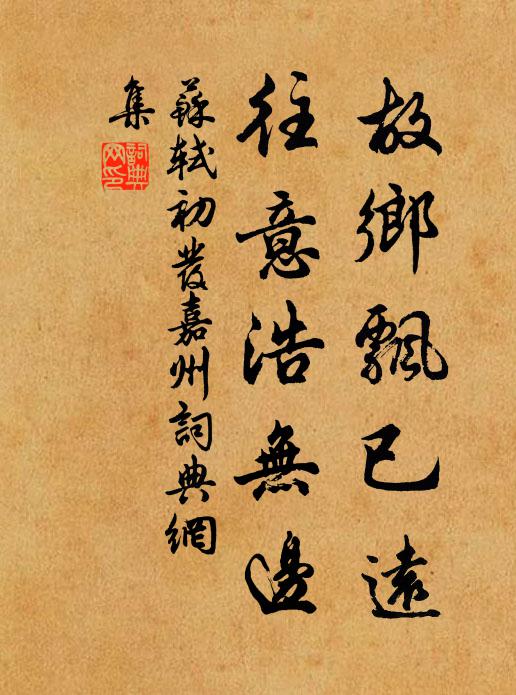 故鄉飄已遠
往意浩無邊
蘇軾初發嘉州詞典網
集
詞典
网印